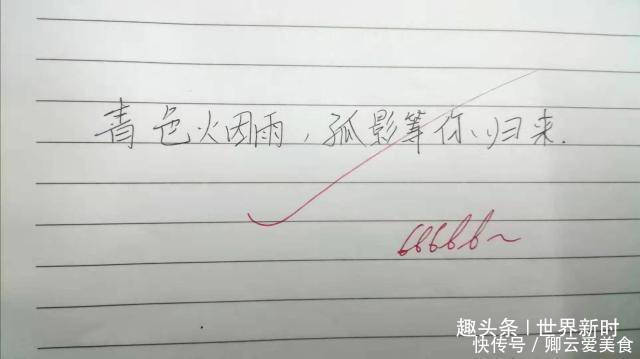 青色烟雨，孤影等你归来.
66666~
趣头条 | 世界新时
快传号 / 卿云爱美食